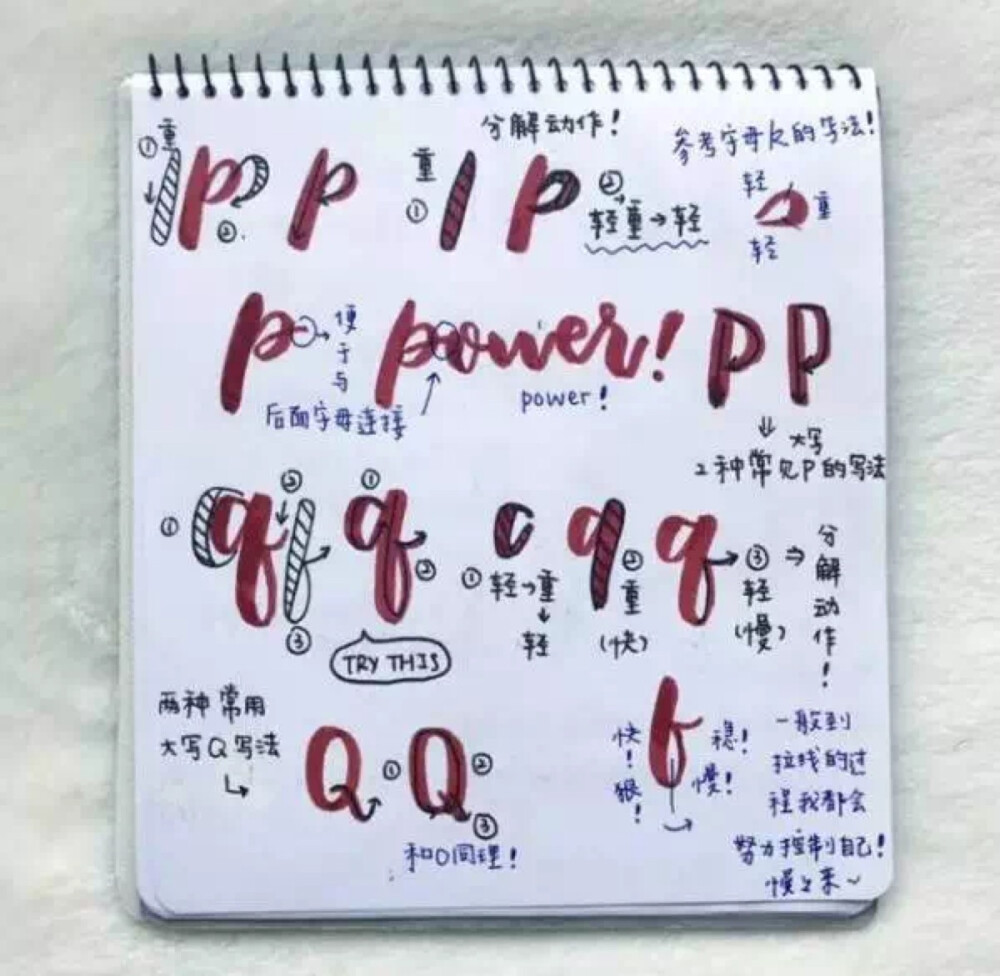 分解动作！
参考字母k的写法！
① 重
p
②
p
重
①
p
②
轻重→轻
轻
重
轻
p
→便于与
后面字母连接
power!
power!
P P
⇓ 大写
2种常见P的写法
①
q
②
③
①
q
②
TRY THIS
c
①轻→重
↓
轻
q
②
重
(快)
q
→③
轻
(慢)
⇒ 分解动作！
两种常用
大写Q写法
Q
①Q②
③
和O同理！
快！狠！
稳！
慢！
一般到
拉线的过
程我都会
努力控制自己！
慢々来～